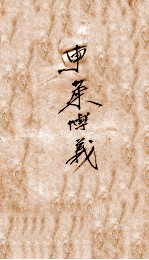 東萊博義